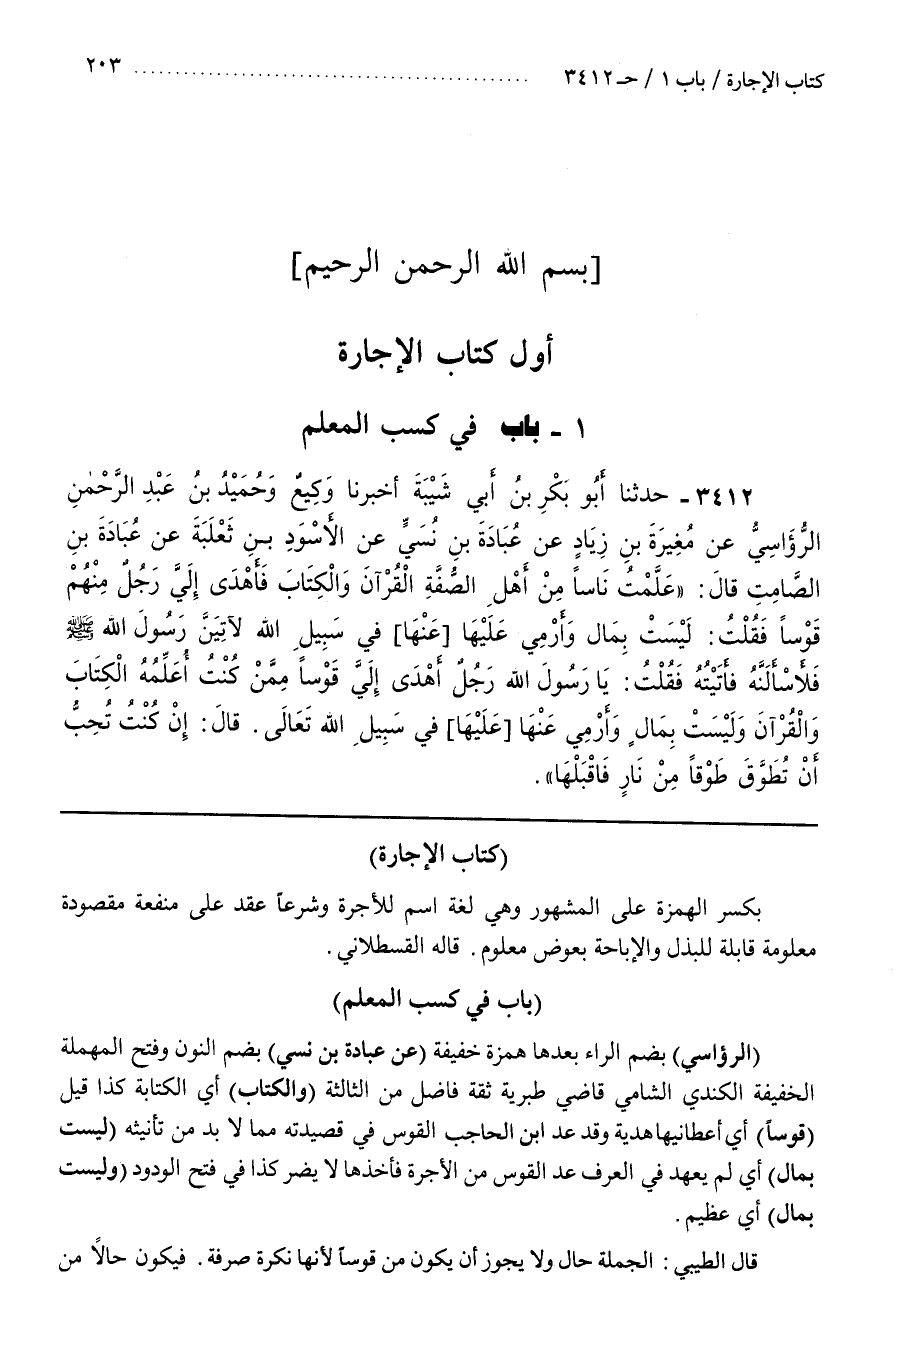 كتاب الإجارة / باب ١ / حـ ٣٤١٢ ........................................ ٢٠٣
[بسم الله الرحمن الرحيم]
أول كتاب الإجارة
١ ـ باب في كسب المعلم
٣٤١٢ ـ حدثنا أَبُو بَكْرِ بنُ أَبي شَيْبَةَ أخبرنا وَكِيعٌ وَحُمَيْدُ بنُ عَبْدِ الرَّحْمٰنِ
الرُّؤَاسِيُّ عن مُغِيرَةَ بنِ زِيَادٍ عن عُبَادَةَ بنِ نُسَيٍّ عن الأَسْوَدِ بـنِ ثَعْلَبَةَ عن عُبَادَةَ بنِ
الصَّامِتِ قالَ: «عَلَّمْتُ نَاساً مِنْ أَهْلِ الصُّفَّةِ الْقُرْآنَ وَالْكِتَابَ فَأَهْدَى إِلَيَّ رَجُلٌ مِنْهُمْ
قَوْساً فَقُلْتُ: لَيْسَتْ بِمَال وَأَرْمِي عَلَيْهَا [عَنْهَا] في سَبِيلِ الله لآتِيَنَّ رَسُولَ الله ﷺ
فَلَأَسْأَلَنَّهُ فأَتَيْتُهُ فَقُلْتُ: يَا رَسُولَ الله رَجُلٌ أَهْدَى إِلَيَّ قَوْساً مِمَّنْ كُنْتُ أُعَلِّمُهُ الْكِتَابَ
وَالْقُرْآنَ وَلَيْسَتْ بِمَالٍ وَأَرْمِي عَنْهَا [عَلَيْهَا] في سَبِيلِ الله تَعَالَى. قالَ: إِنْ كُنْتُ تُحِبُّ
أَنْ تُطَوَّقَ طَوْقاً مِنْ نَارٍ فَاقْبَلْهَا».
(كتاب الإجارة)
بكسر الهمزة على المشهور وهي لغة اسم للأجرة وشرعاً عقد على منفعة مقصودة
معلومة قابلة للبذل والإباحة بعوض معلوم. قاله القسطلاني.
(باب في كسب المعلم)
(الرؤاسي) بضم الراء بعدها همزة خفيفة (عن عبادة بن نسي) بضم النون وفتح المهملة
الخفيفة الكندي الشامي قاضي طبرية ثقة فاضل من الثالثة (والكتاب) أي الكتابة كذا قيل
(قوساً) أي أعطانيها هدية وقد عد ابن الحاجب القوس في قصيدته مما لا بد من تأنيثه (ليست
بمال) أي لم يعهد في العرف عد القوس من الأجرة فأخذها لا يضر كذا في فتح الودود (وليست
بمال) أي عظيم.
قال الطيبي: الجملة حال ولا يجوز أن يكون من قوساً لأنها نكرة صرفة. فيكون حالًا من